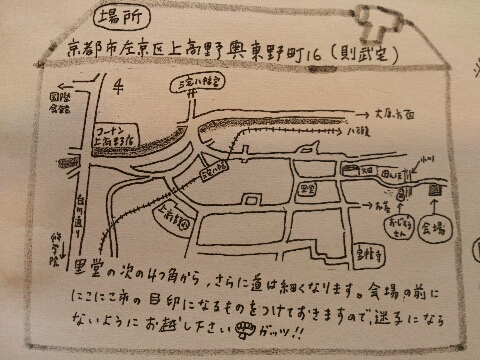 場所
京都市左京区上高野奥東野町16(則武宅)
三宅八幡宮
国際会館
大原方面
八瀬
コーナン
上高野店
白川通り
修学院
三宅八幡
上高野小
里堂
お寺
宝幢寺
小川
おじぞうさん
会場
里堂の次の4つ角から、さらに道は細くなります。会場の前に
にこにこ市の目印になるものをつけておきますので迷子になら
ないようにお越し下さい ガッツ!!